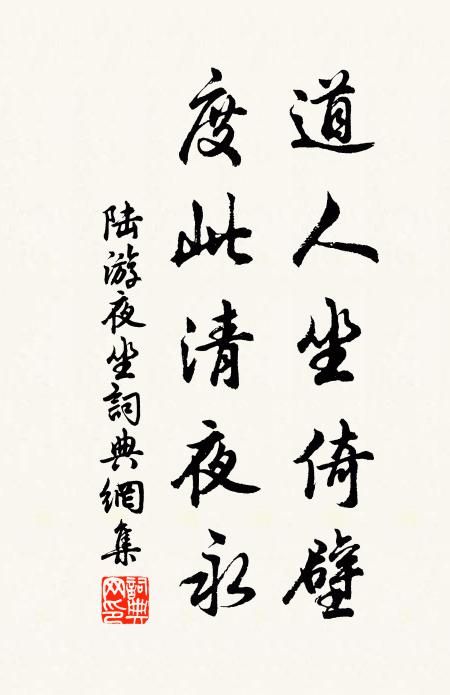 道人坐倚壁
度此清夜永
陆游夜坐詞典網集
詞典网印